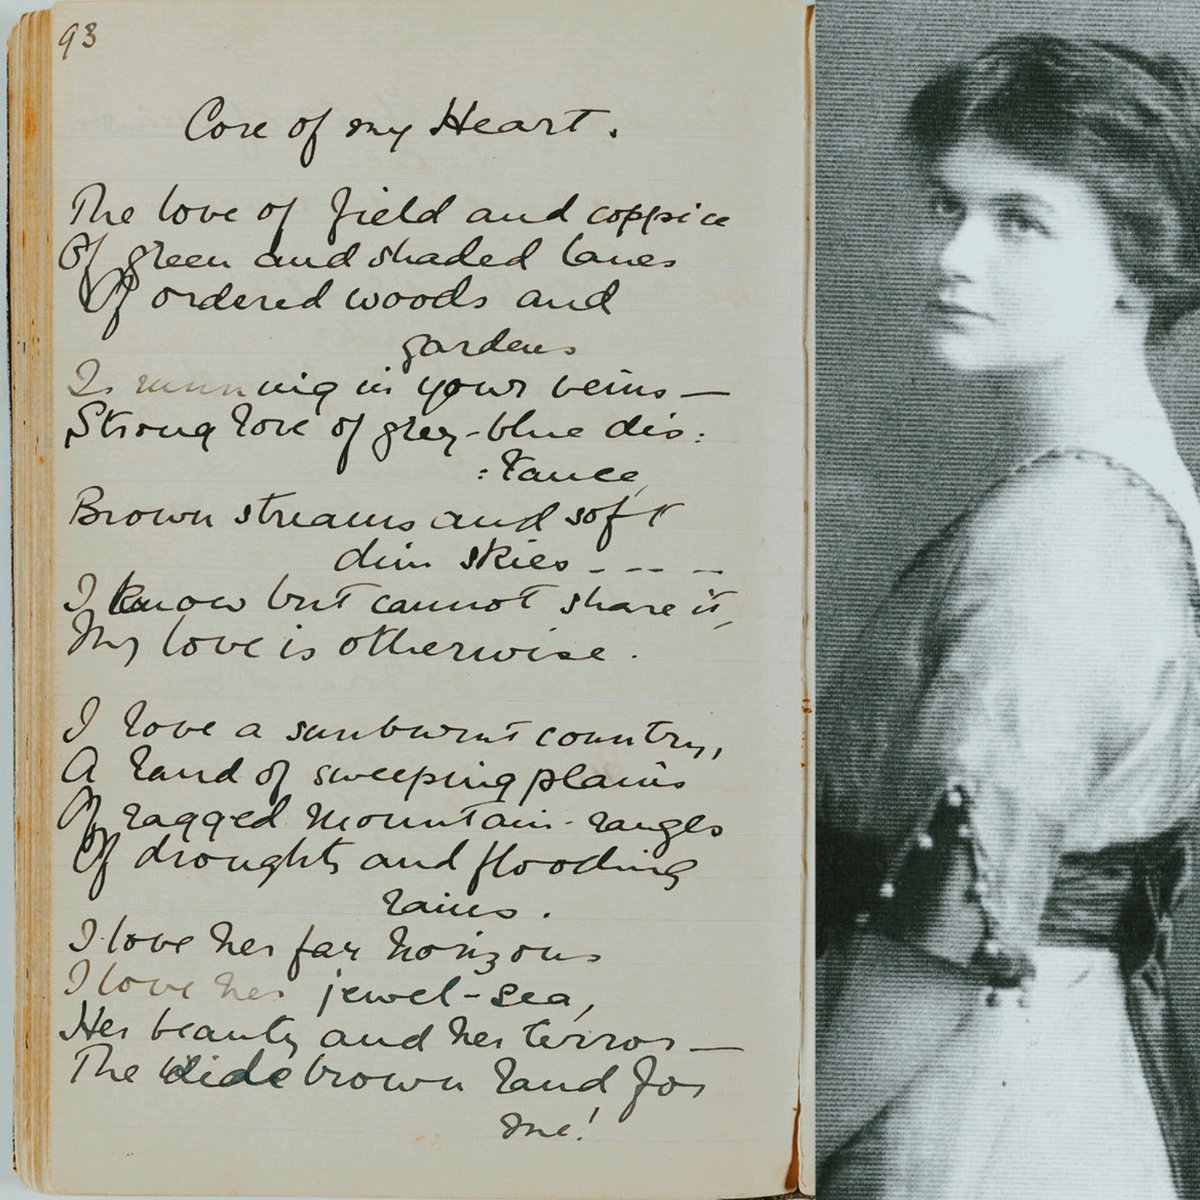 93
Core of my Heart.
The love of field and coppice
Of green and shaded lanes
Of ordered woods and
gardens
Is running in your veins —
Strong love of grey-blue dis:
:tance,
Brown streams and soft
dim skies - - - -
I know but cannot share it,
My love is otherwise.
I love a sunburnt country,
A land of sweeping plains
Of ragged mountain-ranges
Of droughts and flooding
rains.
I love her far horizons
I love her jewel-sea,
Her beauty and her terror —
The Wide brown land for
me!